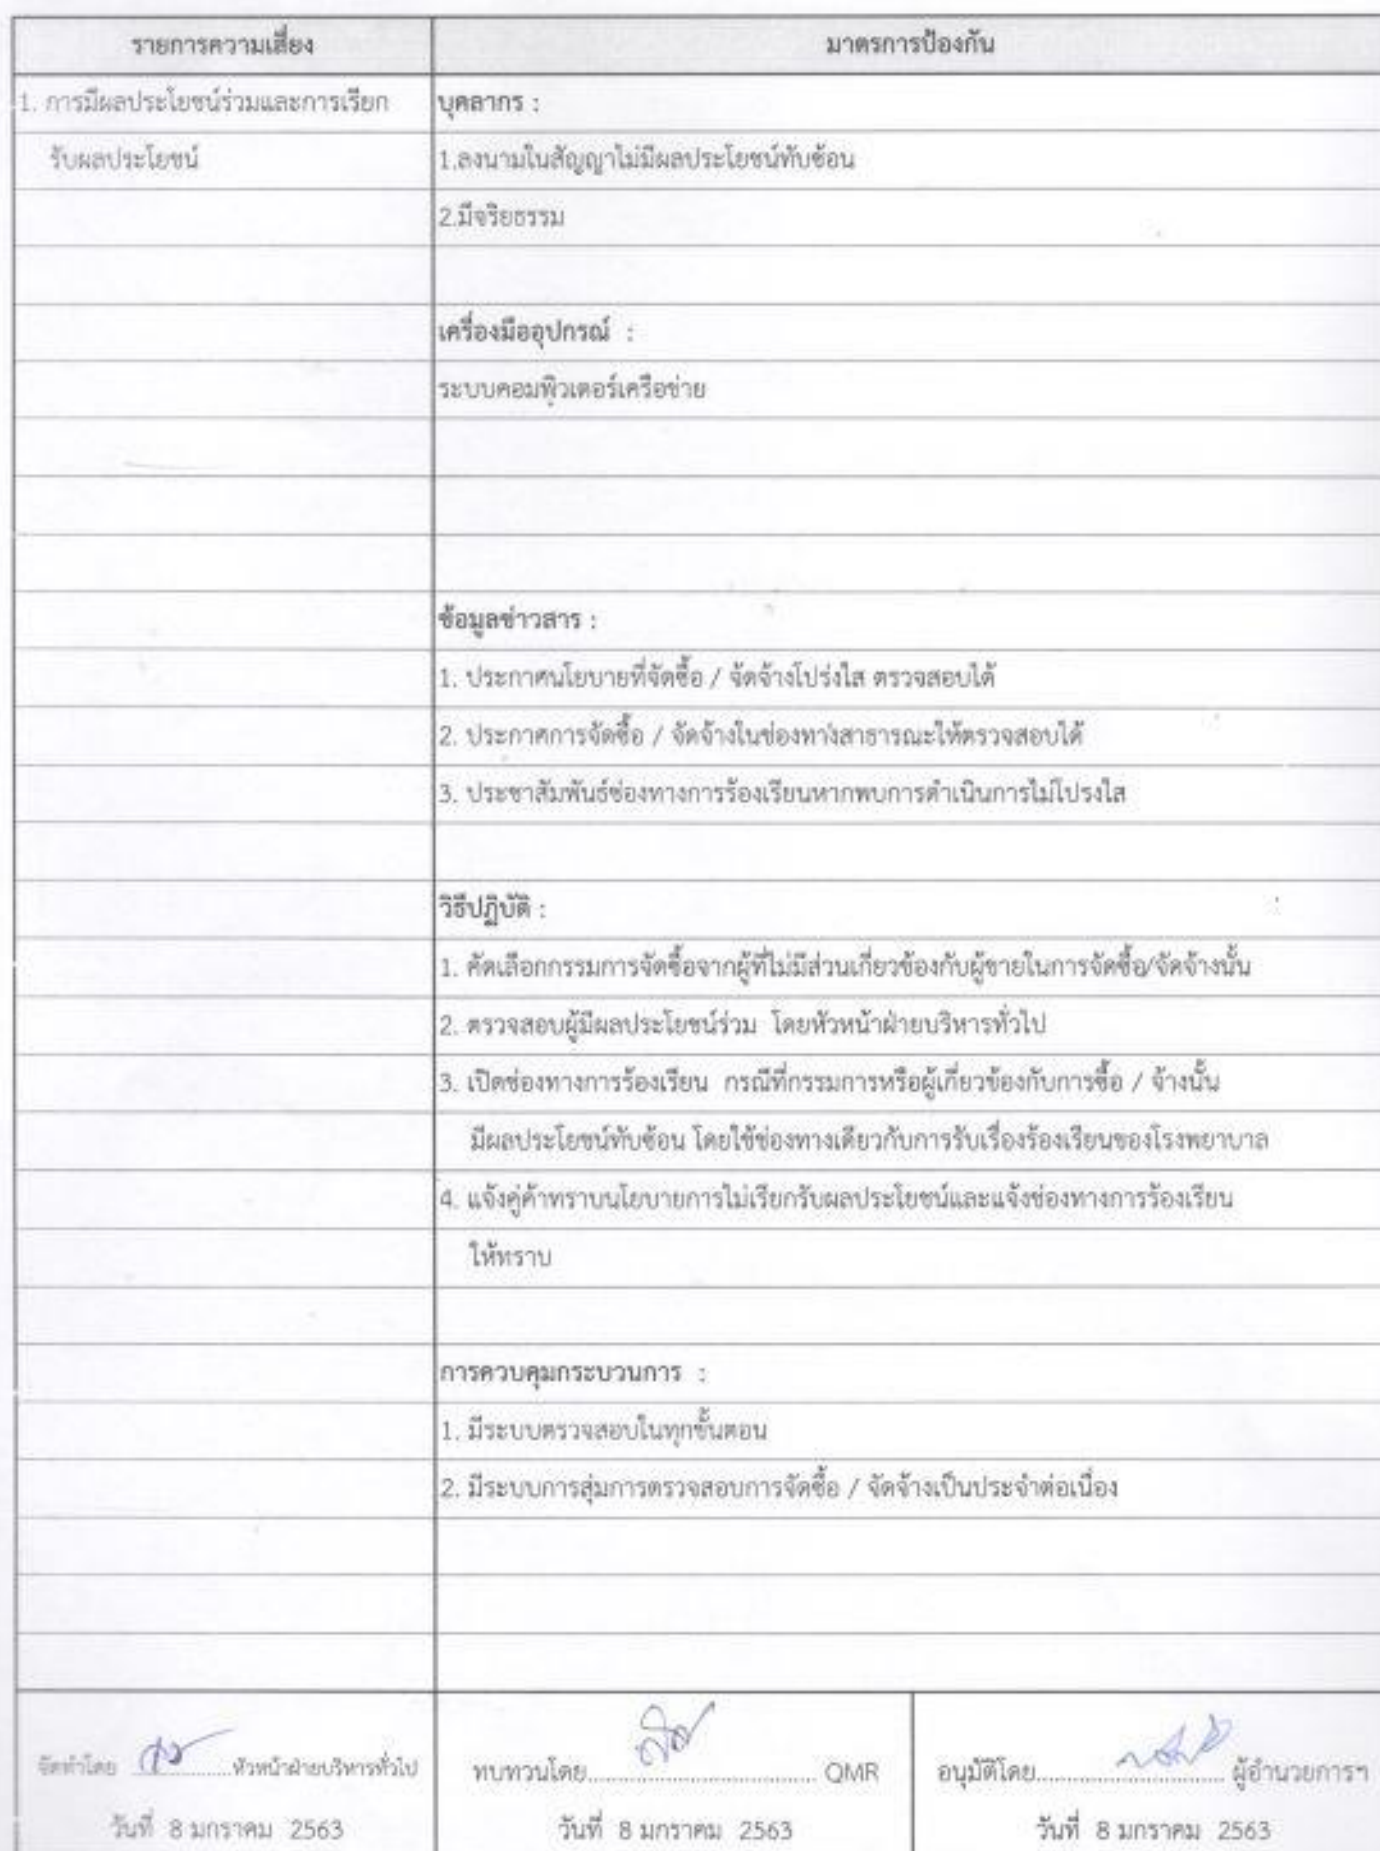 รายการความเสี่ยง
มาตรการป้องกัน
1. การมีผลประโยชน์ร่วมและการเรียก
บุคลากร :
รับผลประโยชน์
1.ลงนามในสัญญาไม่มีผลประโยชน์ทับซ้อน
2.มีจริยธรรม
เครื่องมืออุปกรณ์ :
ระบบคอมพิวเตอร์เครือข่าย
ข้อมูลข่าวสาร :
1. ประกาศนโยบายที่จัดซื้อ / จัดจ้างโปร่งใส ตรวจสอบได้
2. ประกาศการจัดซื้อ / จัดจ้างในช่องทางสาธารณะให้ตรวจสอบได้
3. ประชาสัมพันธ์ช่องทางการร้องเรียนหากพบการดำเนินการไม่โปรงใส
วิธีปฏิบัติ :
1. คัดเลือกกรรมการจัดซื้อจากผู้ที่ไม่มีส่วนเกี่ยวข้องกับผู้ขายในการจัดซื้อ/จัดจ้างนั้น
2. ตรวจสอบผู้มีผลประโยชน์ร่วม โดยหัวหน้าฝ่ายบริหารทั่วไป
3. เปิดช่องทางการร้องเรียน กรณีที่กรรมการหรือผู้เกี่ยวข้องกับการซื้อ / จ้างนั้น
มีผลประโยชน์ทับซ้อน โดยใช้ช่องทางเดียวกับการรับเรื่องร้องเรียนของโรงพยาบาล
4. แจ้งคู่ค้าทราบนโยบายการไม่เรียกรับผลประโยชน์และแจ้งช่องทางการร้องเรียน
ให้ทราบ
การควบคุมกระบวนการ :
1. มีระบบตรวจสอบในทุกขั้นตอน
2. มีระบบการสุ่มการตรวจสอบการจัดซื้อ / จัดจ้างเป็นประจำต่อเนื่อง
จัดทำโดย ................หัวหน้าฝ่ายบริหารทั่วไป
ทบทวนโดย................................ QMR
อนุมัติโดย.......................... ผู้อำนวยการฯ
วันที่ 8 มกราคม 2563
วันที่ 8 มกราคม 2563
วันที่ 8 มกราคม 2563